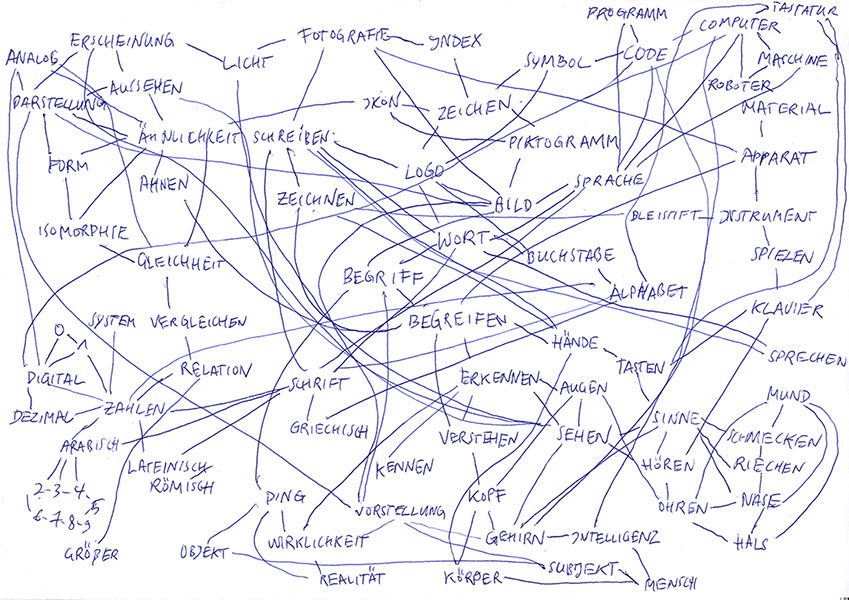 PROGRAMM
TASTATUR
ERSCHEINUNG
FOTOGRAFIE
INDEX
COMPUTER
ANALOG
LICHT
SYMBOL
CODE
MASCHINE
AUSSEHEN
ROBOTER
DARSTELLUNG
IKON
ZEICHEN
MATERIAL
ÄHNLICHKEIT
SCHREIBEN
PIKTOGRAMM
FORM
LOGO
APPARAT
AHNEN
SPRACHE
ZEICHNEN
BILD
BLEISTIFT
INSTRUMENT
ISOMORPHIE
WORT
GLEICHHEIT
BUCHSTABE
SPIELEN
BEGRIFF
ALPHABET
SYSTEM
VERGLEICHEN
BEGREIFEN
KLAVIER
0
1
HÄNDE
SPRECHEN
DIGITAL
RELATION
SCHRIFT
ERKENNEN
AUGEN
TASTEN
MUND
DEZIMAL
ZAHLEN
SINNE
GRIECHISCH
VERSTEHEN
SEHEN
SCHMECKEN
ARABISCH
LATEINISCH
RÖMISCH
KENNEN
HÖREN
RIECHEN
2-3-4-
5
6-7-8-9
DING
VORSTELLUNG
KOPF
OHREN
NASE
GRÖßER
OBJEKT
WIRKLICHKEIT
GEHIRN
INTELLIGENZ
HALS
REALITÄT
KÖRPER
SUBJEKT
MENSCH